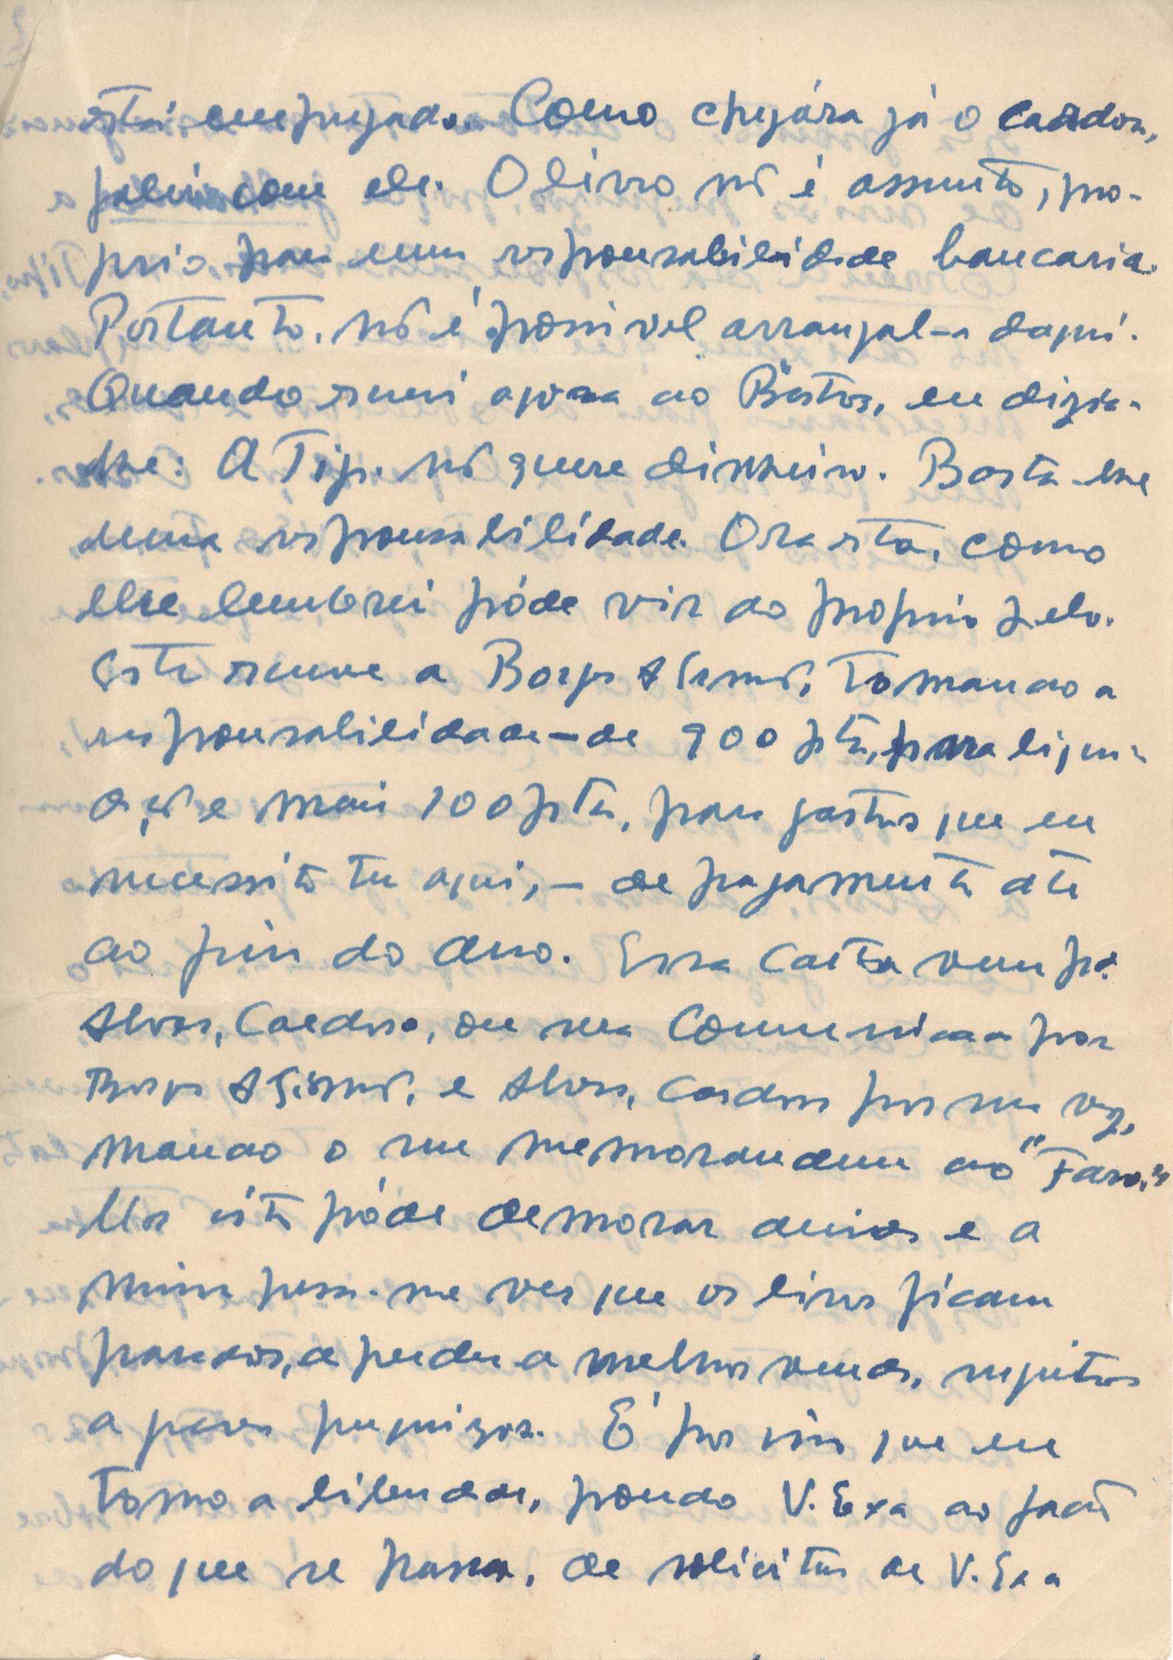 está empregado. Como chegára já o Cardoso,
falei com ele. O livro nõ é assunto, pro-
prio para uma responsabilidade bancaria.
Portanto, nõ é possivel arranjal-a daqui.
Quando escrevi agora ao Bastos, eu dizia-
lhe: A Tip. nõ quere dinheiro. Basta-lhe
uma responsabilidade. Ora esta, como
lhe lembrei póde vir ao proprio pelo.
Este escreve a Borges & Irmõ, tomando a
responsabilidade — de 900 ptas, para liqui-
dação e mais 100 ptas, para gastos que eu
necessito ter aqui, — de pagamento até
ao fim do ano. Essa carta vem pa
Alves, Cardoso, ou sua comunicaa por
Borges & Irmõ, e Alves, Cardoso por sua vez,
mandao o seu memorandum ao "Faro,"
Mas isto póde demorar dias e a
mim pesa-me ver que os livros ficam
parados, a perder a melhor venda, sujeitos
a graves prejuizos. É por isso que eu
tomo a liberdade, pondo V. Exa ao facto
do que se passa, de solicitar de V. Exa